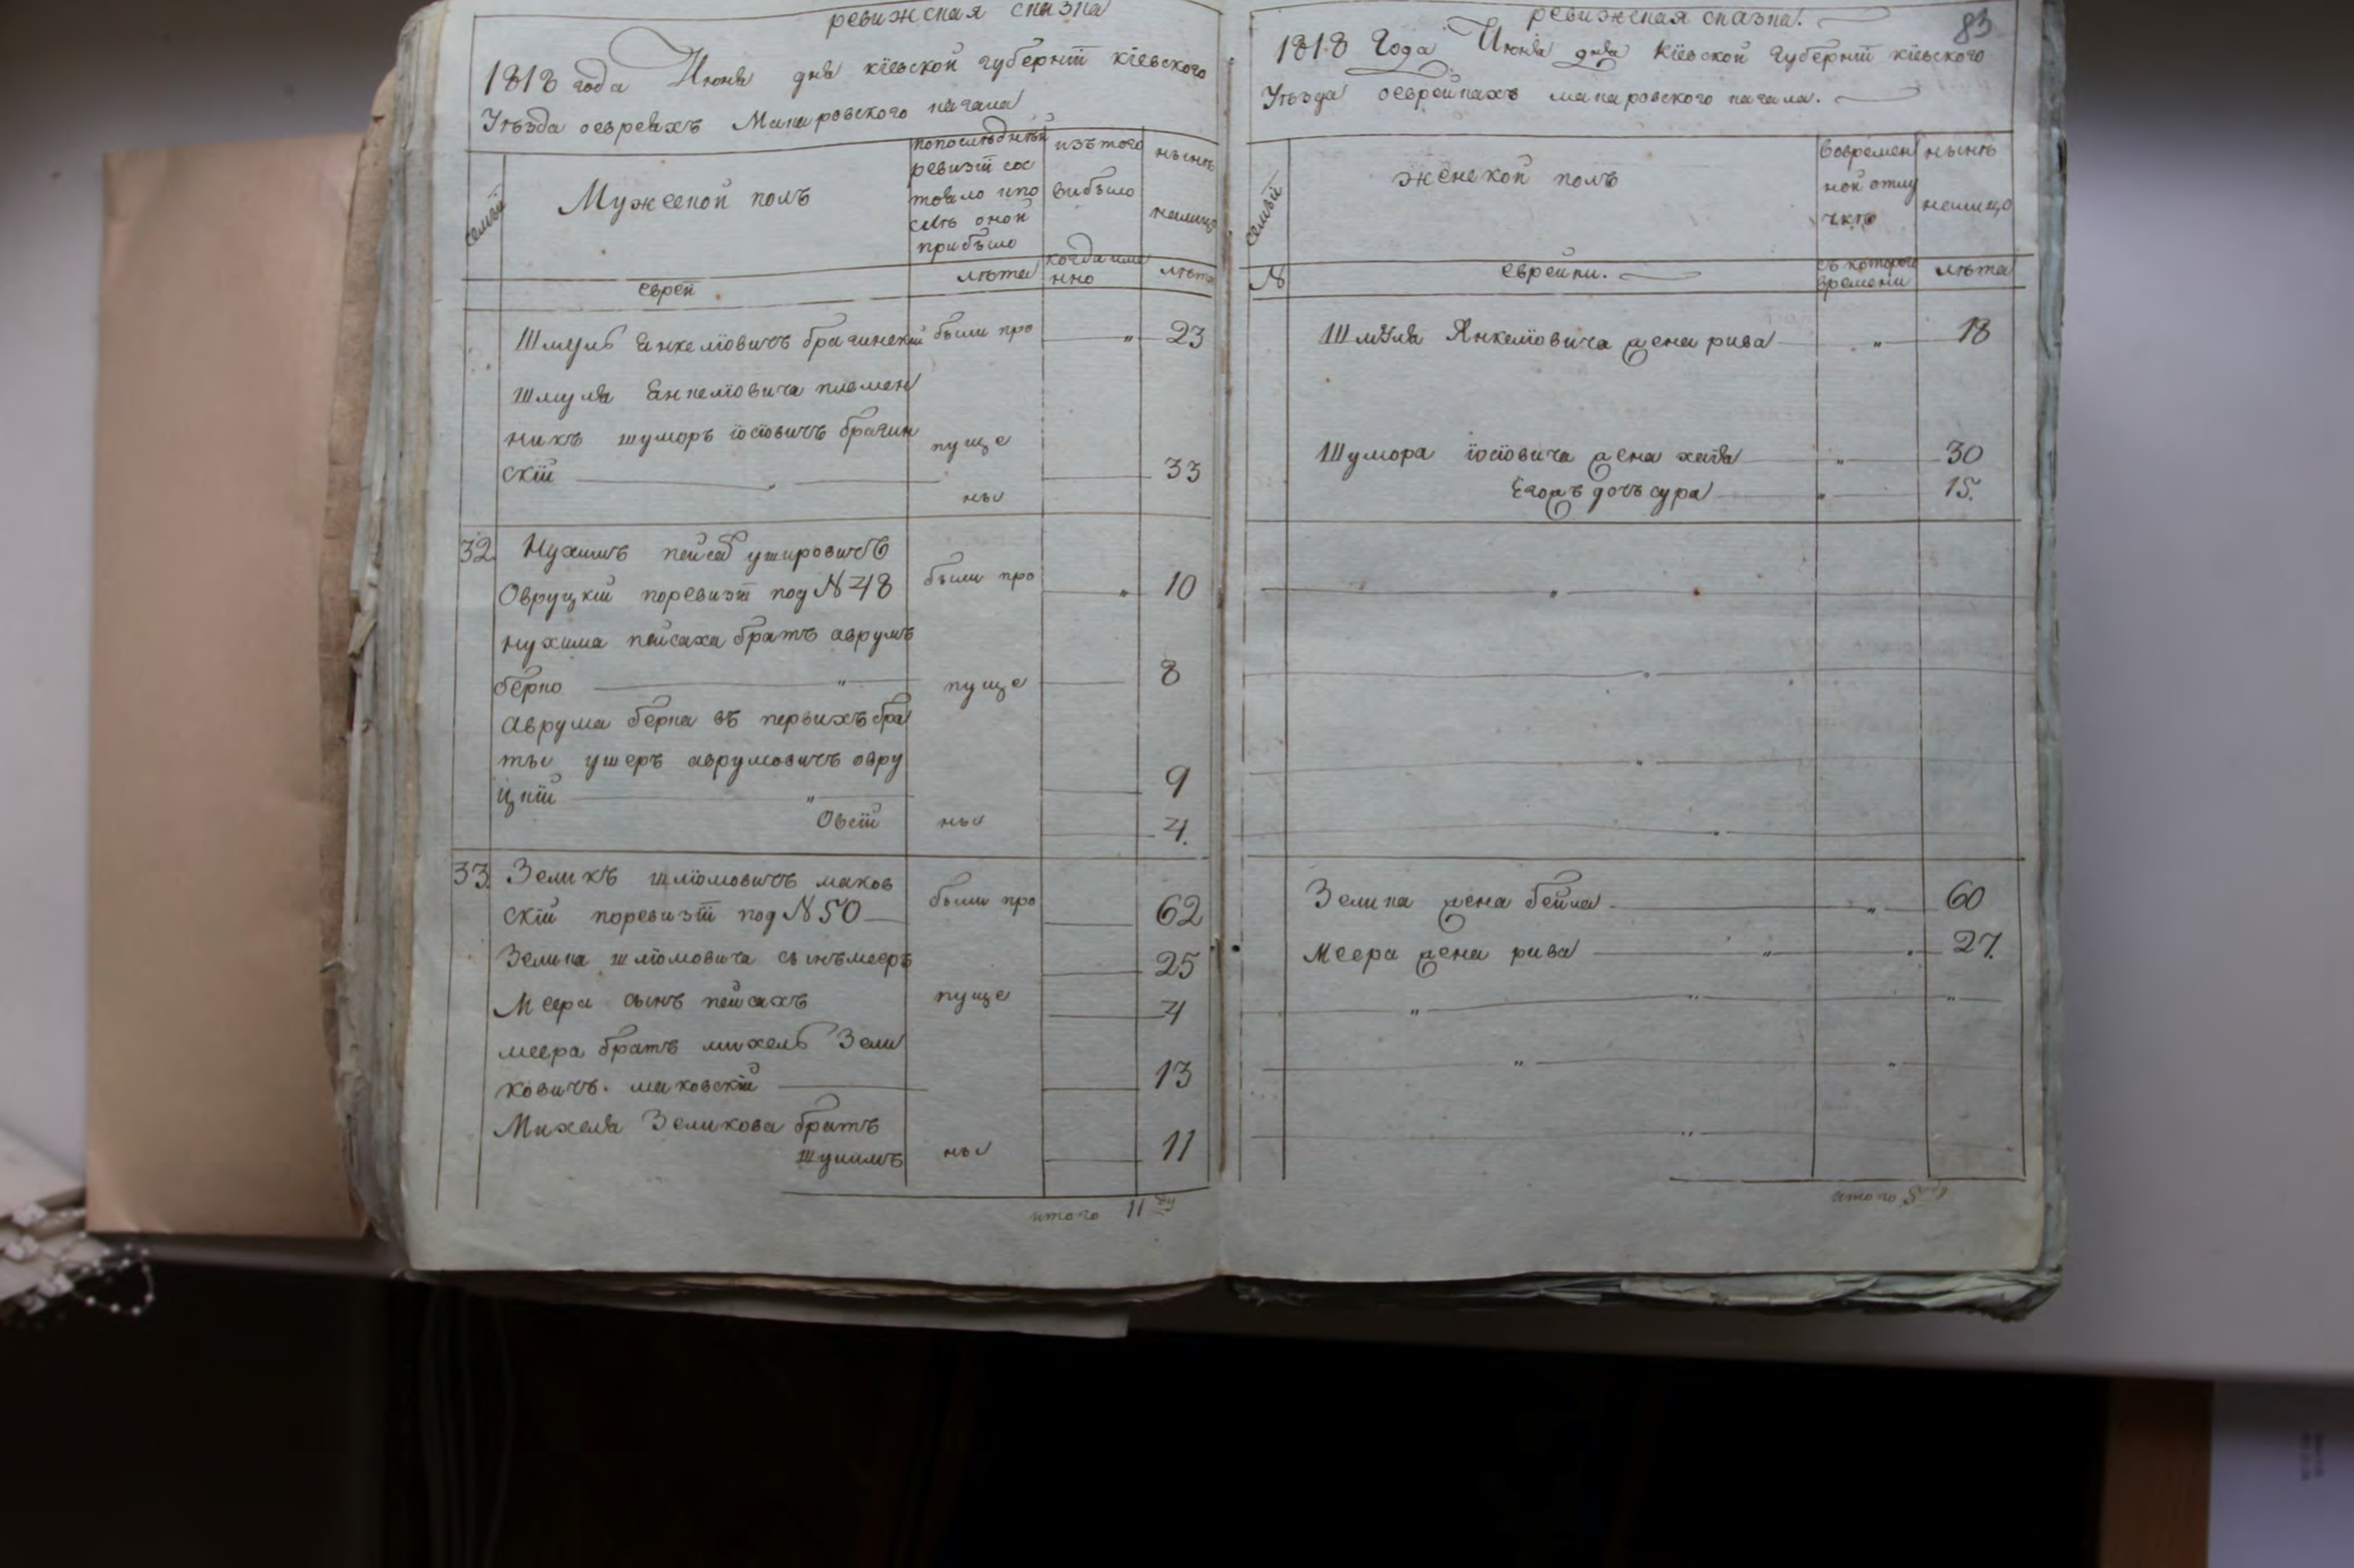 ревижская сказка
1818 года Июня дня кіевской губерніи кіевского
Уѣзда оевреяхъ Макаровского кагала
семьи
Мужеской полъ
попослѣдней
ревизіи сос
тояло ипо
слѣ оной
прибыло
изътого
выбыло
нынѣ
налицо
еврей
лѣта
когдаиме
нно
лѣта
Шмуль Янкеліовичъ брагинскій были про " 23
Шмуля Янкеліовича племен
никъ шуморъ іосіовичъ брагин
скій " пуще 33
ны
32. Нухимъ пейсах ушировичъ
Овруцкій поревизіи под N 48 были про " 10
нухима пейсаха братъ аврумъ
берко " пуще 8
Аврума берка въ первихъ бра
ты ушеръ аврумовичъ овру
цкій " 9
Овсій ны 4.
33. Зеликъ шліомовичъ маков
скій поревизіи под N 50 были про 62
Зелика шліомовича сынъ мееръ 25
Меера сынъ пейсахъ пуще 4
меера братъ михель Зели
ковичъ. маковскій 13
Михеля Зеликова братъ
шулимъ ны 11
итого 11
ревижская сказка.
83
1818 Года Июня дня Кіевской Губерніи кіевского
Уѣзда оеврейкахъ макаровского кагала.
семьи
женской полъ
вовремен
ной отлу
чкѣ
нынѣ
налицо
N
еврейки.
съ которого
времени
лѣта
Шмуля Янкеліовича жена рива " 18
Шумора іосіовича жена хаія " 30
Егожъ дочь сура " 15.
Зелика жена бейла " 60
Меера жена рива " 27.
итого 5